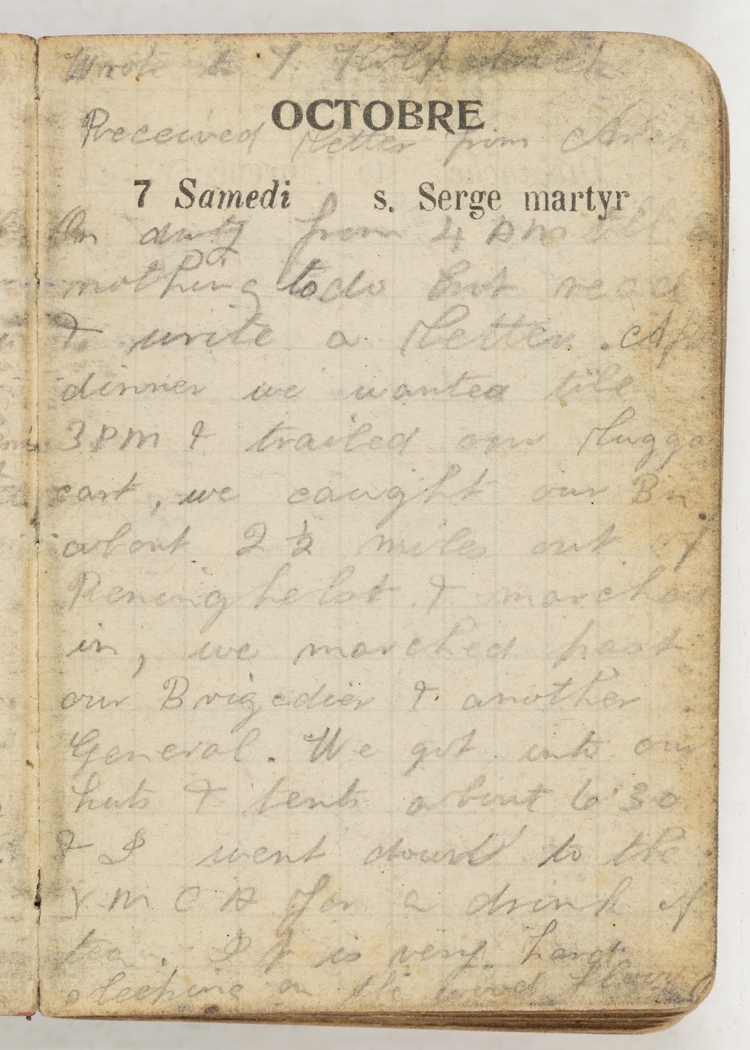 Wrote to J. Kirkpatrick
OCTOBRE
Received letter from Arch
7 Samedi s. Serge martyr
On duty from 4 AM till 8
nothing to do but read
& write a letter. Aft
dinner we waited till
3 PM & trailed our lugga
cart, we caught our Bn
about 2 ½ miles out of
Reninghelst & marched
in, we marched past
our Brigadier & another
General. We got into our
huts & tents about 6.30
& I went down to the
YMCA for a drink of
tea. It is very hard
sleeping on the wood floor